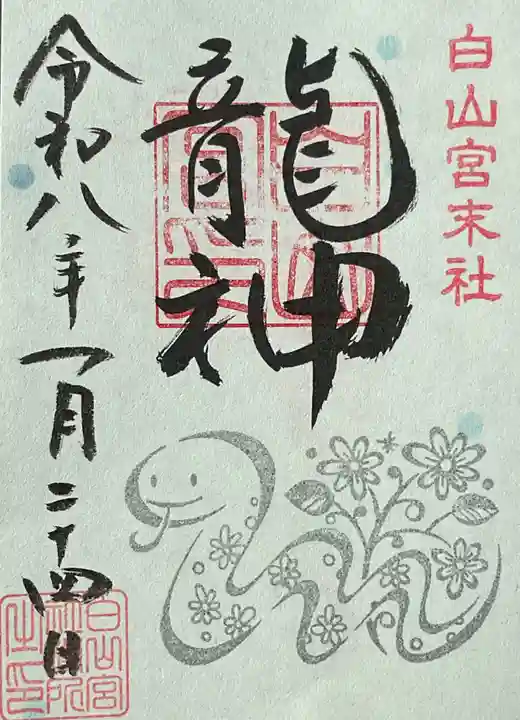 白山宮末社
龍神
令和八年一月二十四日
白山宮
社務所
之印